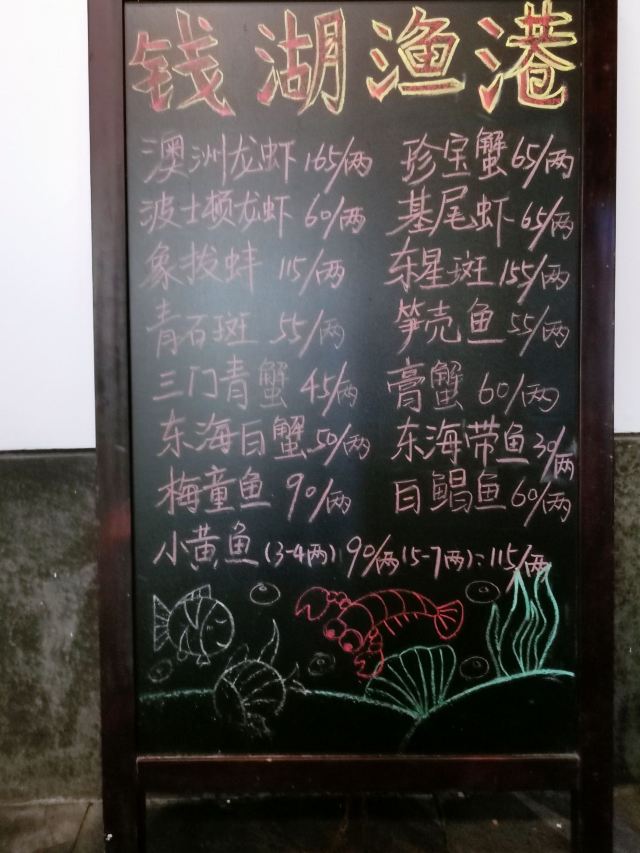 钱湖渔港
澳洲龙虾 165/两 珍宝蟹 65/两
波士顿龙虾 60/两 基尾虾 65/两
象拔蚌 115/两 东星斑 155/两
青石斑 55/两 笋壳鱼 55/两
三门青蟹 45/两 膏蟹 60/两
东海白蟹 50/两 东海带鱼 30/两
梅童鱼 90/两 白鲳鱼 60/两
小黄鱼(3-4两) 90/两 (5-7两): 115/两